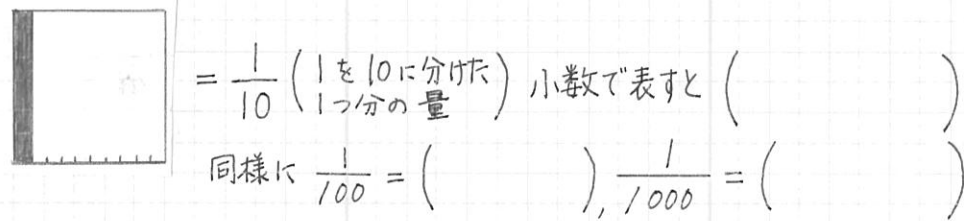 = 1/10 (1を10に分けた1つ分の量) 小数で表すと (　　　)
同様に 1/100 = (　　　), 1/1000 = (　　　)